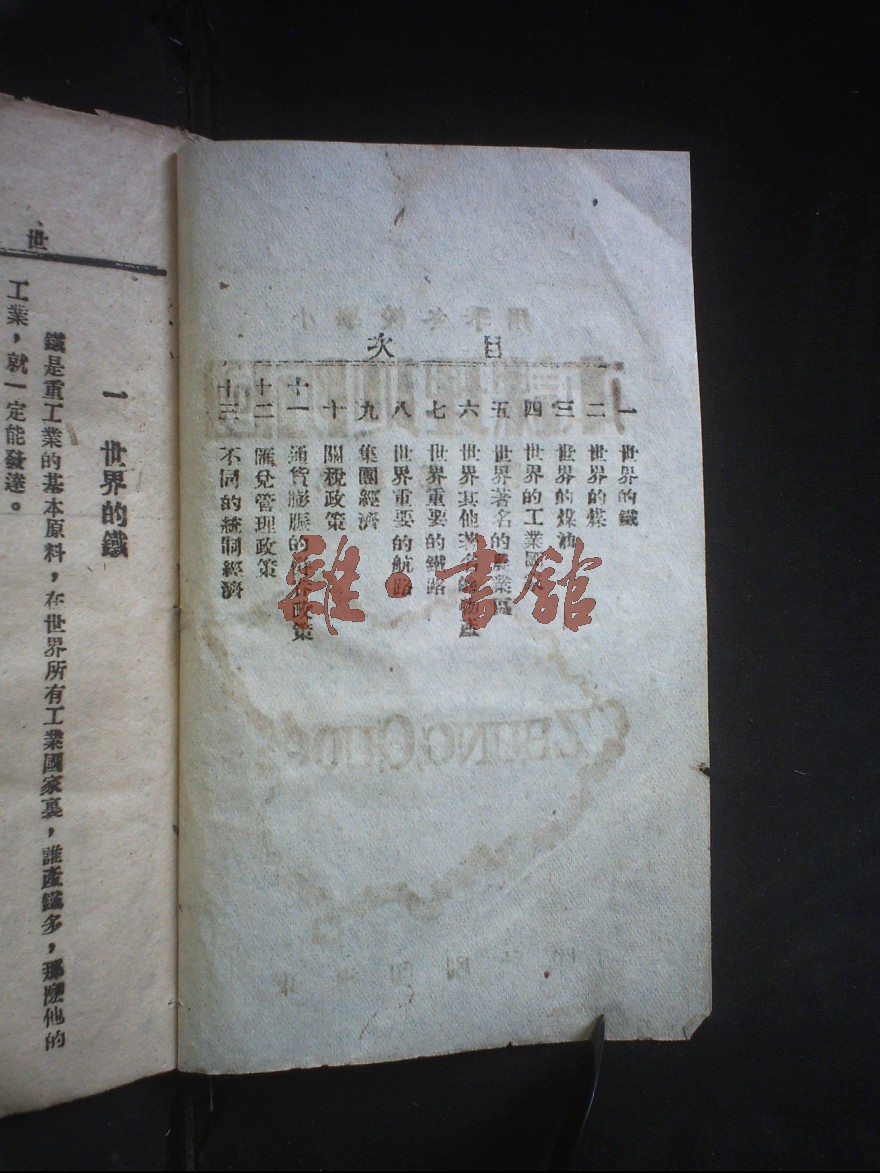 目次
一 世界的鐵
二 世界的煤
三 世界的煤油
四 世界的工業國家
五 世界著名的農業區
六 世界其他著名的物產
七 世界重要的鐵路
八 世界重要的航路
九 集團經濟
十 關稅政策
十一 通貨膨脹的
十二 匯兌管理政策
十三 不同的統制經濟
雜·書館
世
一 世界的鐵
鐵是重工業的基本原料，在世界所有工業國家裏，誰產鐵多，那麼他的
工業，就一定能發達。